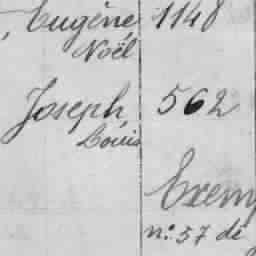 , Eugène, 1148
Noël
Joseph, 562
Louis
Exem
n: 57 de